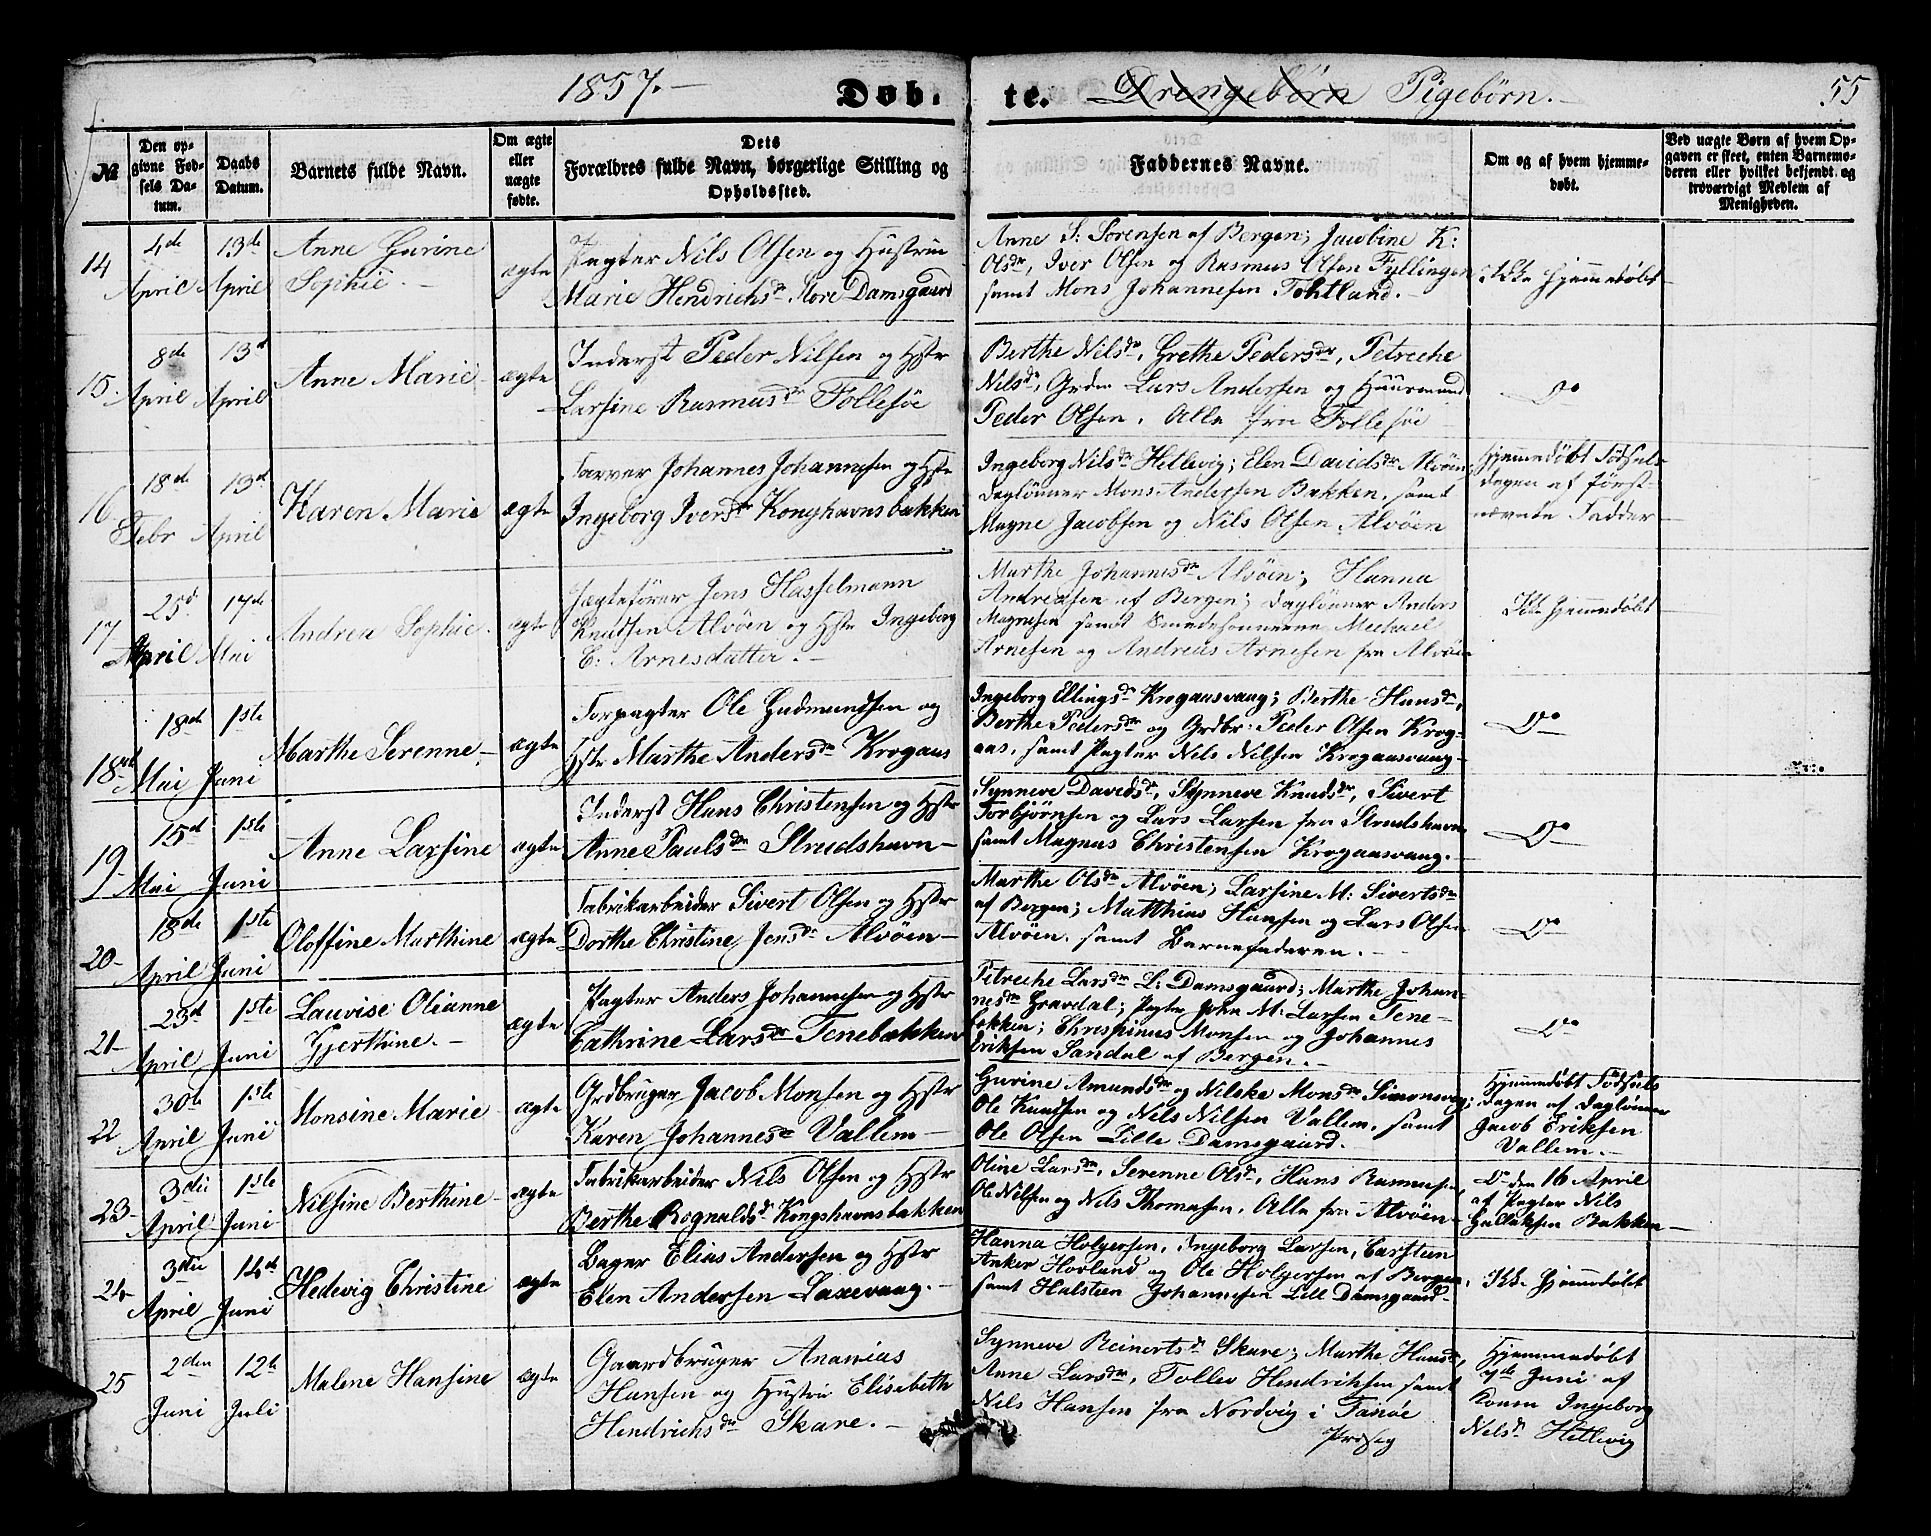 1857.-
Døb. te. Drengebørn Pigebørn.-
55
№
Den op-
givne Fød-
sels Da-
tum.
Daabs
Datum.
Barnets fulde Navn.
Om ægte
eller
uægte
fødte.
Dets
Forældres fulde Navn, borgerlige Stilling og
Opholdssted.
Faddernes Navne.
Om og af hvem hjemme-
døbt.
Ved uægte Børn af hvem Op-
gaven er skeet, enten Barnemo-
deren eller hvilket bekjendt og
troværdigt Medlem af
Menigheden.
14
4de
April
13de
April
Anne Gurine
Sophie.-
ægte
Pagter Nils Olsen og Hustrue
Marie Hendrichsdr Store Damsgaard
Anne S: Sørensen af Bergen; Jacobine K:
Olsdr, Iver Olsen og Rasmus Olsen Fyllingen
samt Mons Johannesen Tohtland.-
Ikke Hjemmedøbt
15.
8de
April
13d
April
Anne Marie
ægte
Inderst Peder Nilsen og Hstr
Larsine Rasmusdr Follesøe
Berthe Nilsdr, Grethe Pedersdr, Petreche
Nilsdr, Grdm Lars Andersen og Huusmand
Peder Olsen. Alle fra Follesøe
Do
16
18de
Febr
13d
April
Karen Marie
ægte
Farver Johannes Johannesen og Hstr
Ingeborg Iversdr Konghavnsbakken
Ingeborg Nilsdr Hetlevig; Elen Davidsdr Alvøen,
Daglønner Mons Andersen Bakken, samt
Magne Jacobsen og Nils Olsen Alvøen
Hjemmedøbt Fødsels
dagen af først-
nævnte Fadder
17
25d
April
17de
Mai
Andrea Sophie.
ægte
Jægtefører Jens Hasselmann
Knudsen Alvøen og Hstr Ingeborg
C: Arnesdatter.-
Marthe Johannesdr Alvøen; Hanna
Andreasen af Bergen; Daglønner Anders
Magnesen samt Smedesønnerne Mechael
Arnesen og Andreas Arnesen fra Alvøen
Ikke Hjemmedøbt
18
18de
Mai
1ste
Juni
Marthe Serenne.-
ægte
Forpagter Ole Gudmundsen og
Hstr Marthe Andersdr Krogaas
Ingeborg Ellingsdr Krogaasvaag; Berthe Hansdr,
Berthe Pedersdr og Grdbr: Peder Olsen Krog-
aas, samt Pagter Nils Nilsen Krogaasvaag-
Do
19
15d
Mai
1ste
Juni
Anne Larsine
ægte
Inderst Hans Christensen og Hstr
Anne Paulsdr Strudshavn-
Synneve Davidsdr, Synneve Knudsdr, Sivert
Torbjørnsen og Lars Larsen fra Strudshavn
samt Magnus Christensen Krogaasvaag.-
Do
20-
18de
April
1ste
Juni
Oloffine Marthine
ægte
Fabrikarbeider Sivert Olsen og Hstr
Dorthe Christine Jensdr Alvøen-
Marthe Olsdr Alvøen; Larsine M: Sivertsdr
af Bergen; Matthias Hansen og Lars Olsen
Alvøen, samt Barnefaderen.-
Do
21-
23d
April
1ste
Juni
Lauvise Olianne
Gjerthine.-
ægte
Pagter Anders Johannesen og Hstr
Cathrine Larsdr Tenebækken
Petreche Larsdr L: Damsgaard; Marthe Johan-
nesdr Gravdal; Pagter John M: Larsen Tene-
bækken; Chrispinus Monsen og Johannes
Eriksen Sandal af Bergen.-
Do
22
30te
April
1ste
Juni
Monsine Marie
ægte
Grdbruger Jacob Monsen og Hstr
Karen Johannesdr Vallem-
Gurine Amundsdr og Nilske Monsdr Simonsvig;
Ole Knudsen og Nils Nilsen Vallem, samt
Ole Olsen Lille Damsgaard.
Hjemmedøbt Fødsels
dagen af Daglønner
Jacob Eriksen
Vallem.-
23-
3die
April
1ste
Juni
Nilsine Berthine
ægte
Fabrikarbeider Nils Olsen og Hstr
Berthe Rognaldsdr Kongshavnsbakken
Oline Larsdr, Serenne Olsdr, Hans Rasmusen,
Ole Nilsen og Nils Thomasen, Alle fra Alvøen-
Do den 16 April
af Pagter Nils
Bakken
24
3die
April
14de
Juni
Hedevig Christine
ægte
Bager Elias Andersen og Hstr
Elen Andersen Laxevaag.-
Hanna Holgersen, Ingeborg Larsen, Carsteen
Anker Hovland og Ole Holgersen af Bergen,
samt Halsteen Johannesen Lill Damsgaard-
Ikke Hjemmedøbt
25
2den
Juni
12te
Juli
Malene Hansine
ægte
Gaardbruger Ananias
Hansen og Hustru Elisabeth
Hendrichsdr Skare.-
Synneve Reinertsdr Skare; Marthe Hansdr,
Anne Larsdr, Tollev Hendriksen samt
Nils Hansen fra Nordvig i Fanøe
Præstg
Hjemmedøbt
7de Juni af
Konen Ingeborg
Nilsdr Hetlevig